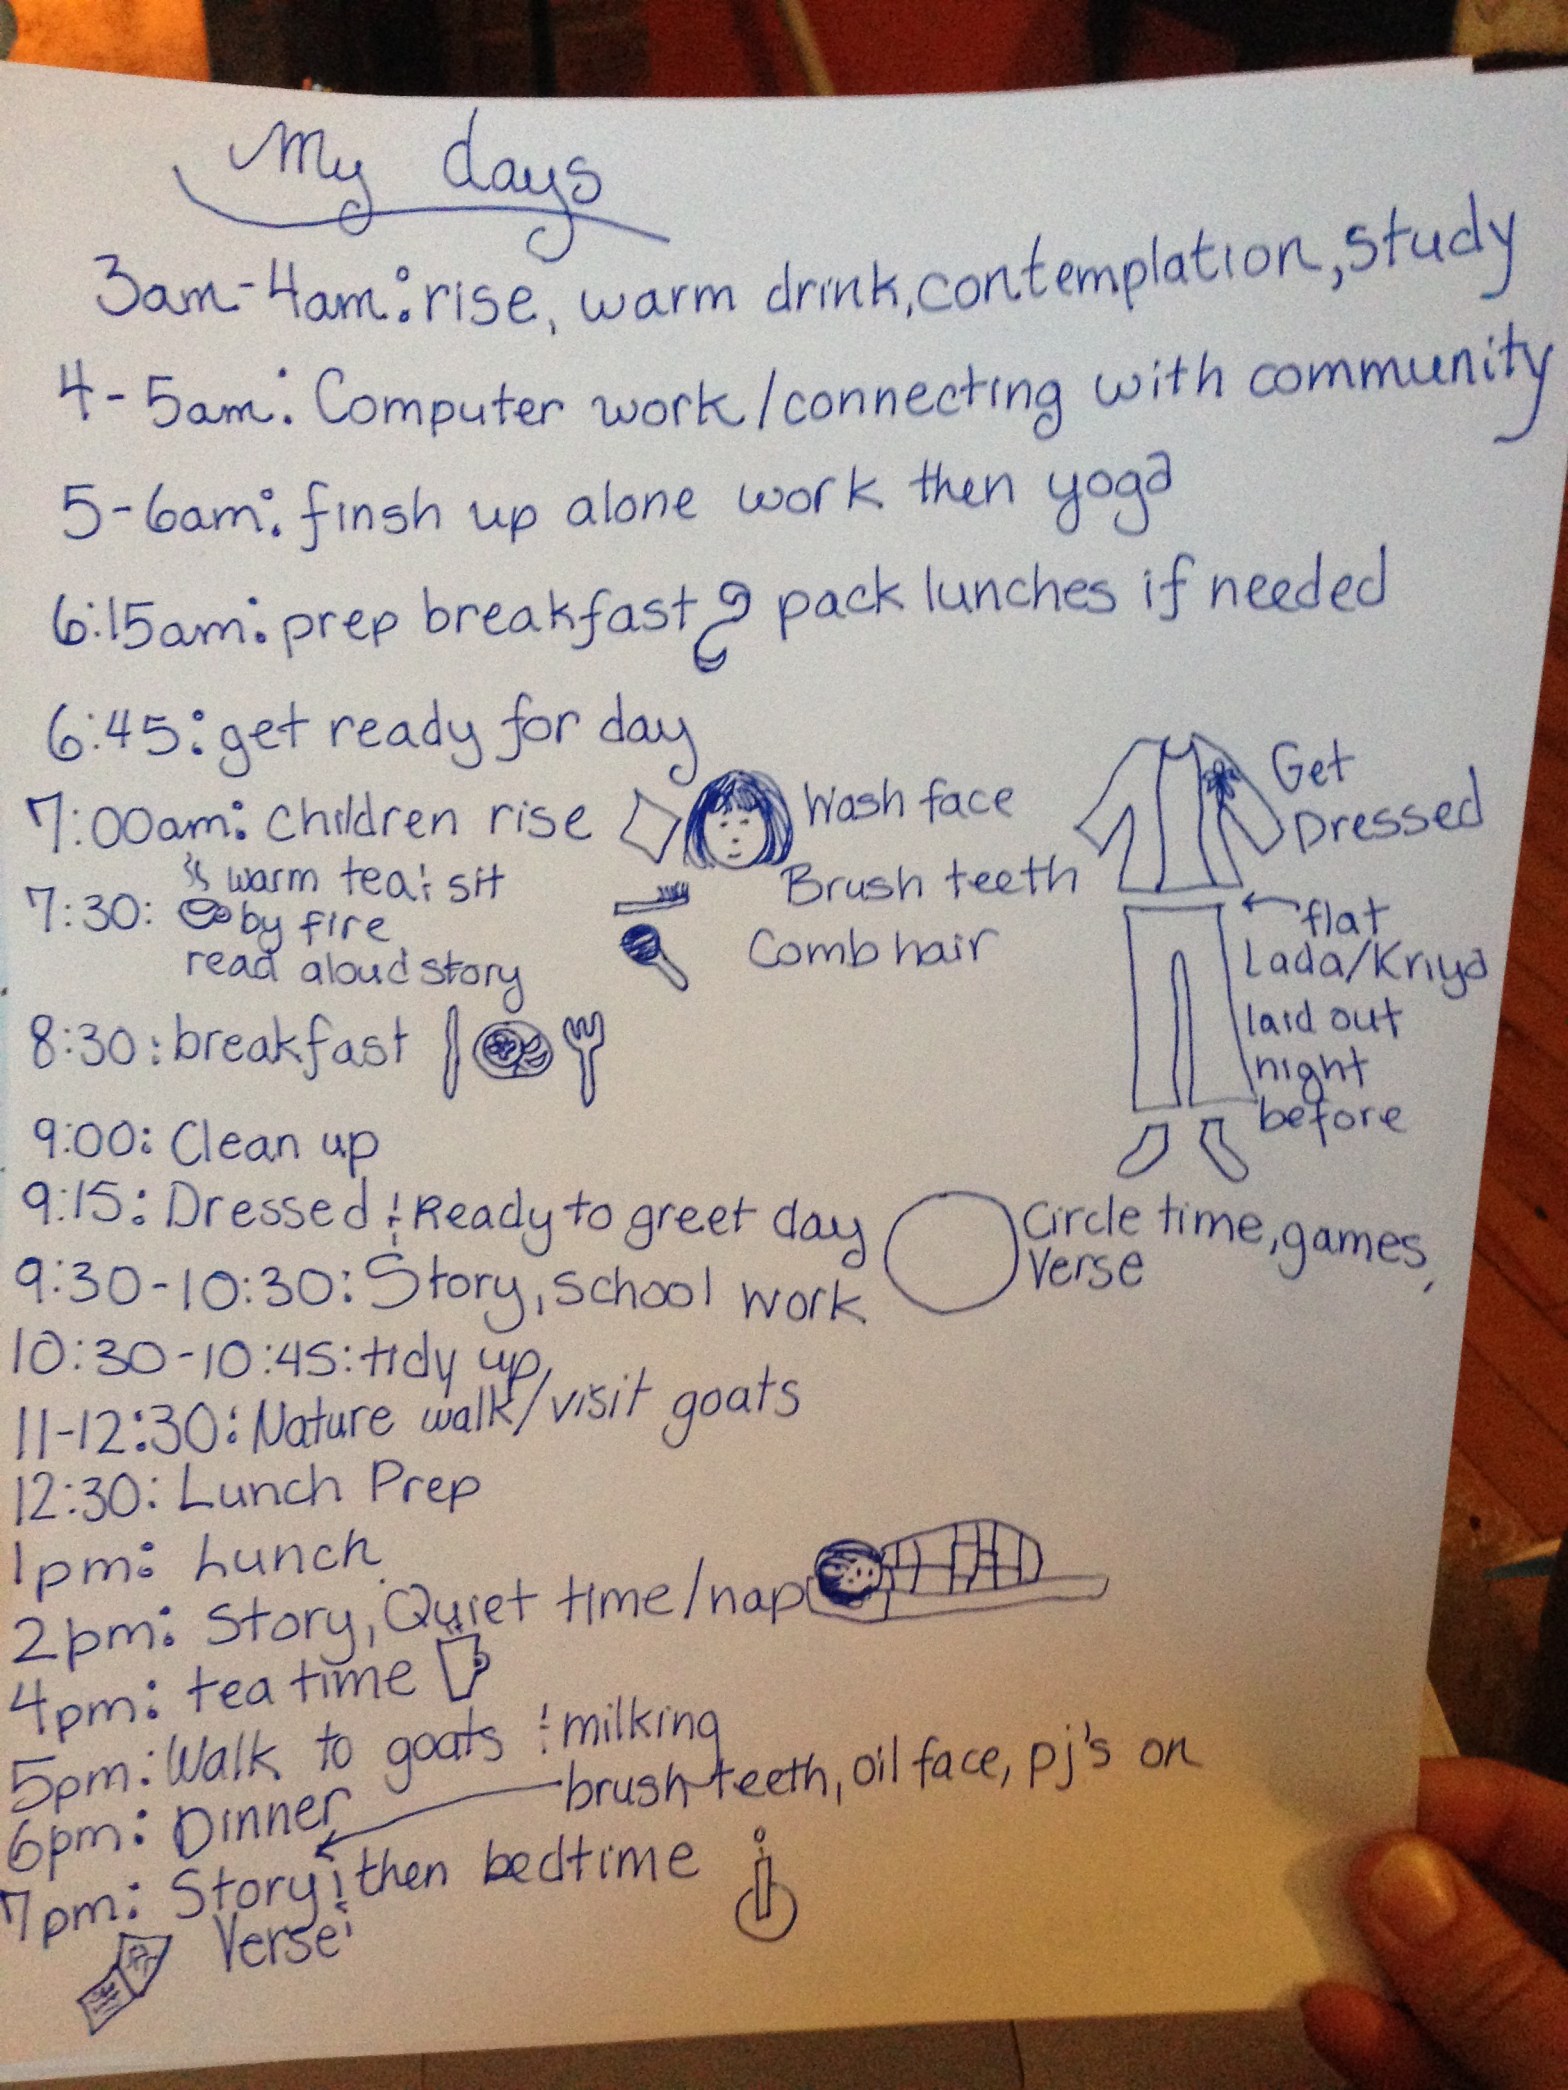 My days
3am-4am: rise, warm drink, contemplation, study
4-5am: Computer work/connecting with community
5-6am: finsh up alone work then yoga
6:15am: prep breakfast & pack lunches if needed
6:45: get ready for day
7:00am: Children rise
Wash face
Brush teeth
Comb hair
Get
Dressed
flat
Lada/Kriya
laid out
night
before
7:30: warm tea & sit
by fire
read aloud story
8:30: breakfast
9:00: Clean up
9:15: Dressed & Ready to greet day
Circle time, games,
Verse
9:30-10:30: Story, school work
10:30-10:45: tidy up
11-12:30: Nature walk/visit goats
12:30: Lunch Prep
1pm: Lunch
2pm: Story, Quiet time/nap
4pm: tea time
5pm: Walk to goats & milking
6pm: Dinner
brush teeth, oil face, pj's on
7pm: Story & then bedtime
Verse